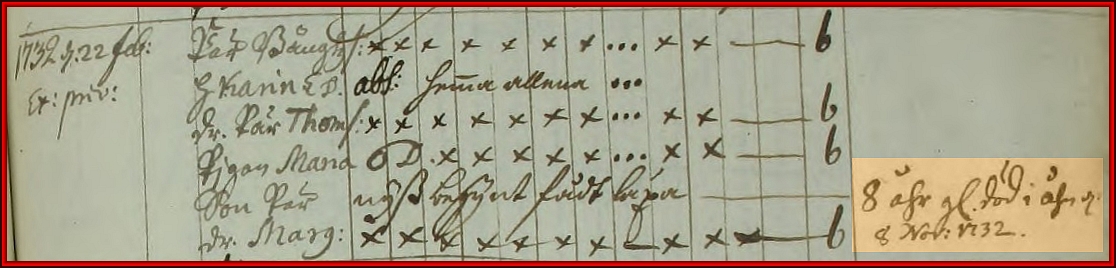 1732 d. 22 feb: Pär Bängts: x x x x x x x ... x x — b
Ex: priv: H Karin E D. abs: hema allena ...
dr. Pär Thoms: x x x x x x x ... x x — b
Pigan Maria O D. x x x x x ... x x — b
Son Pär nyss begynt
dr. Marg: x x x x x x x — x x x — b
8 åhr gl. död i åhr d.
8 Nov: 1732.